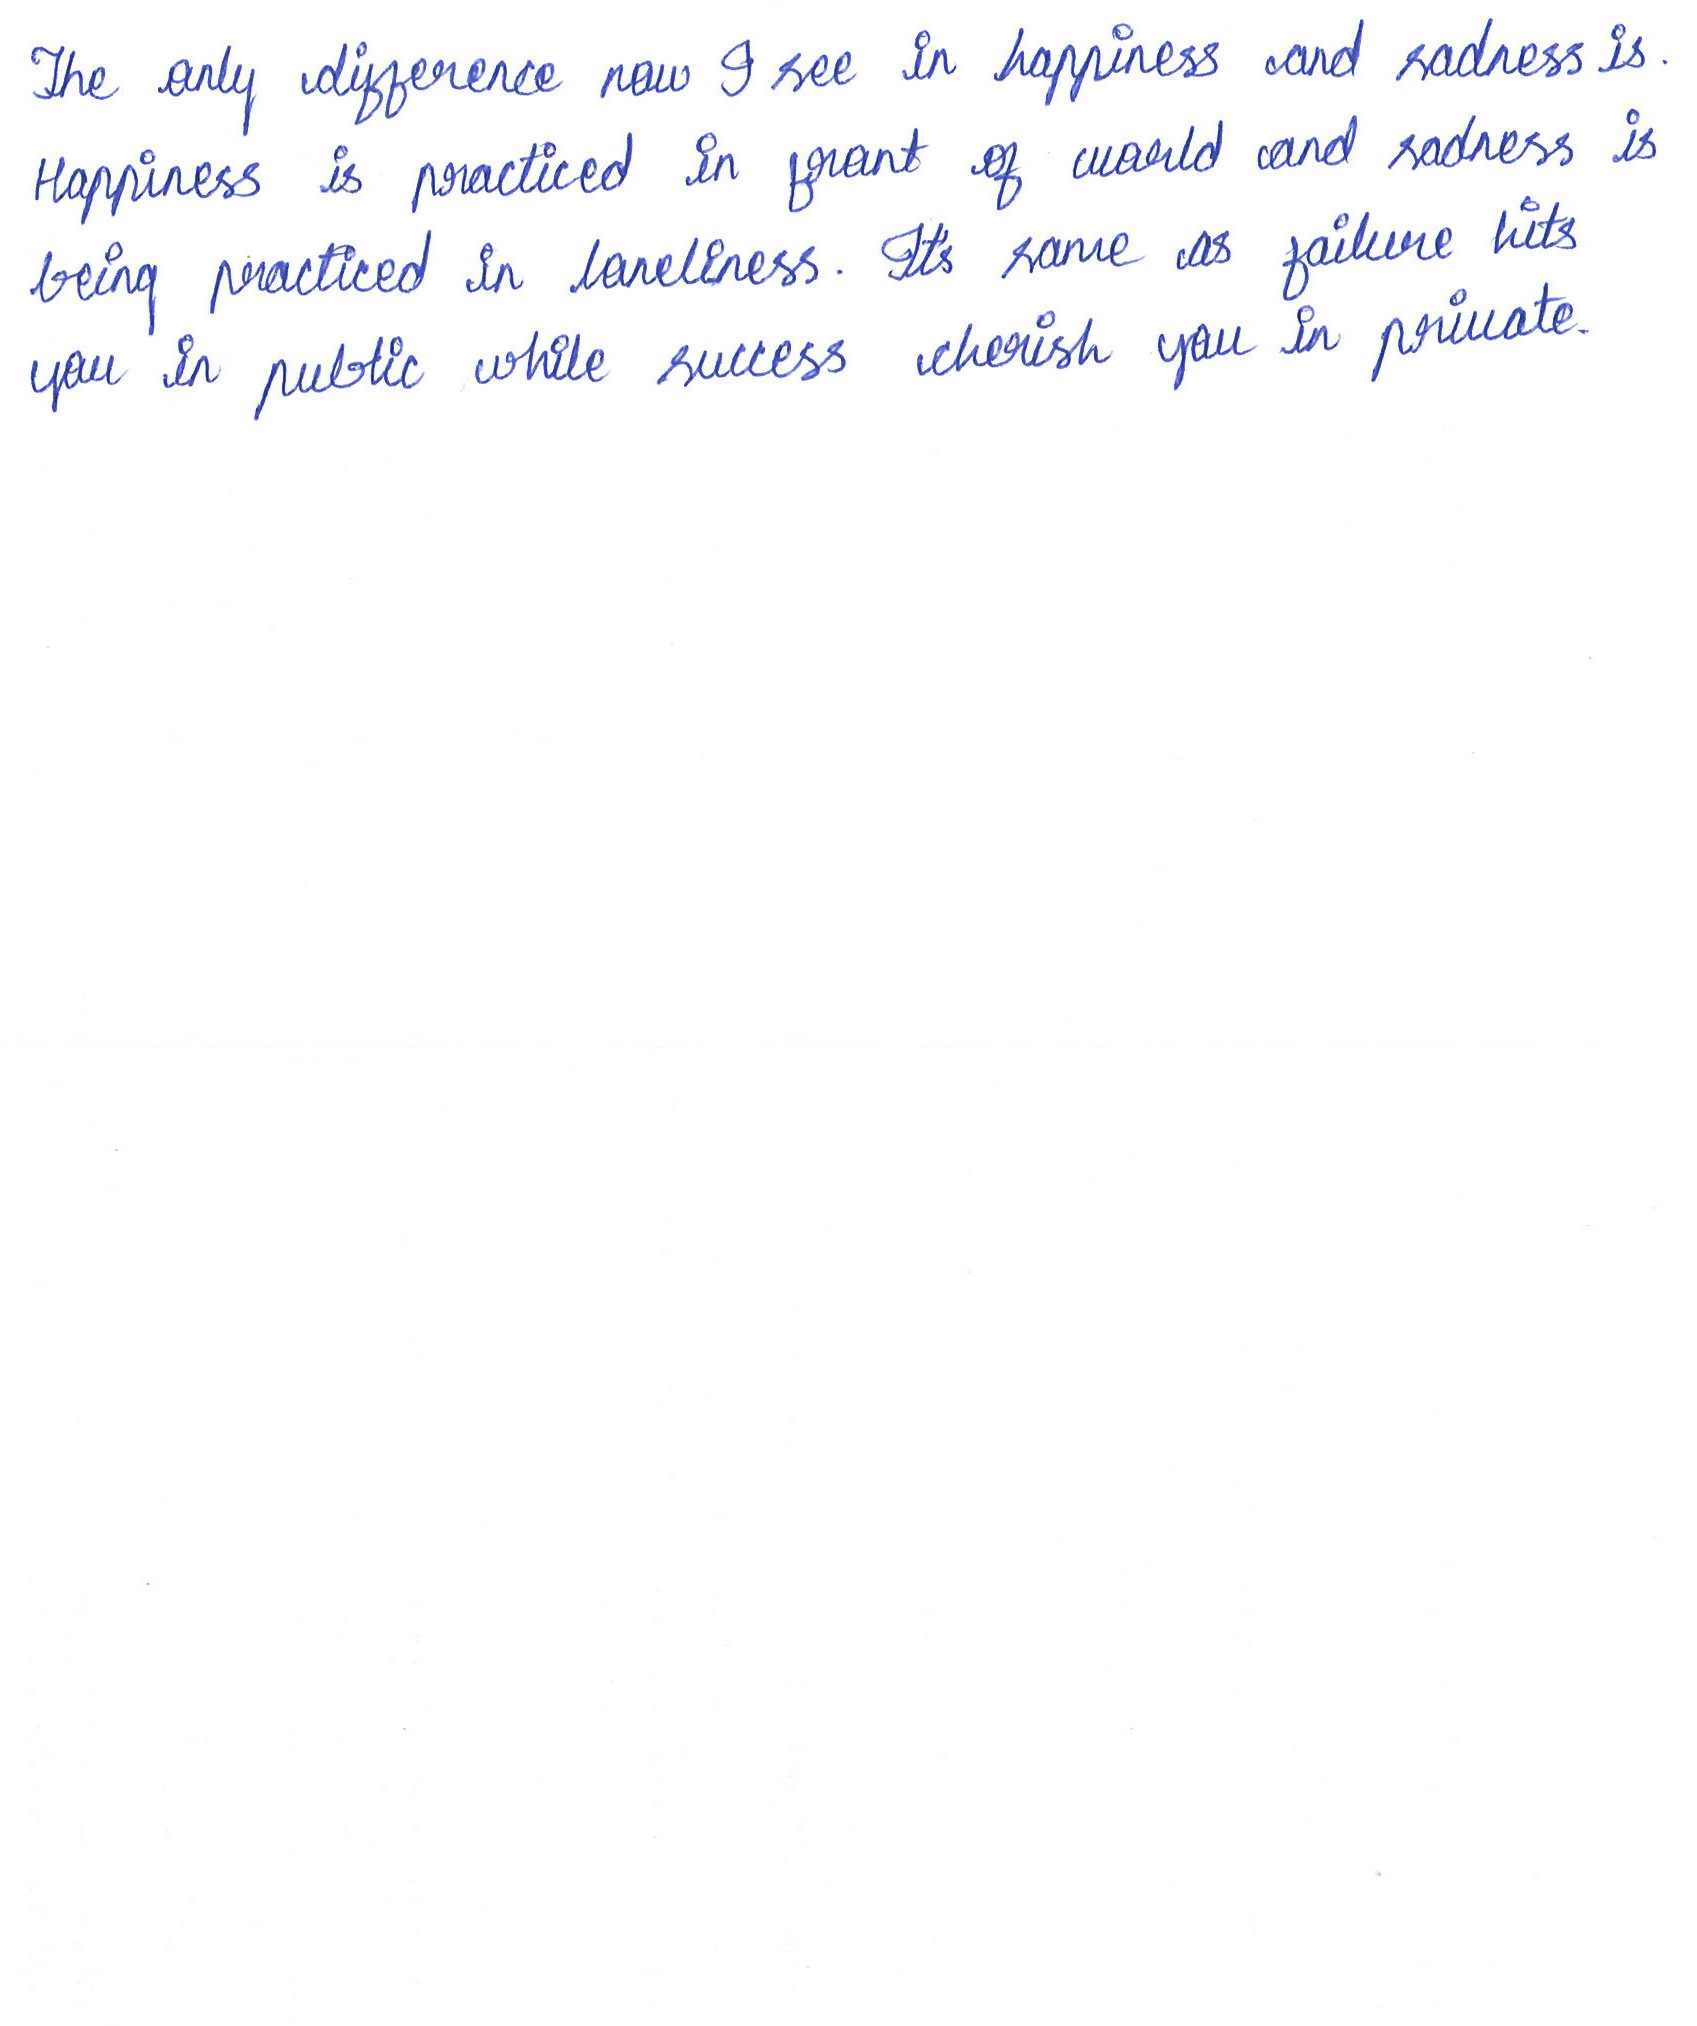 The only difference now I see in happiness and sadness is.
Happiness is practiced in front of world and sadness is
being practiced in loneliness. It's same as failure hits
you in public while success cherish you in private.